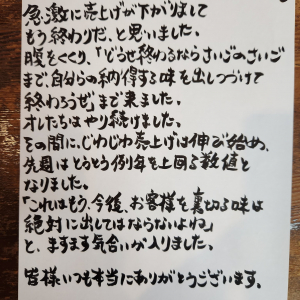 急激に売上げが下がりまして
もう終わりだ、と思いました。
腹をくくり、「どうせ終わるならさいごのさいご
まで、自分らの納得する味を出しつづけて
終わろうぜ」まで来ました。
オレたちはやり続けました。
その間に、じわじわ売上げは伸び始め、
先週はとうとう例年を上回る数値と
なりました。
「これはもう、今後、お客様を裏切る味は
絶対に出してはならないよね」
と、ますます気合いが入りました。
皆様いつも本当にありがとうございます。